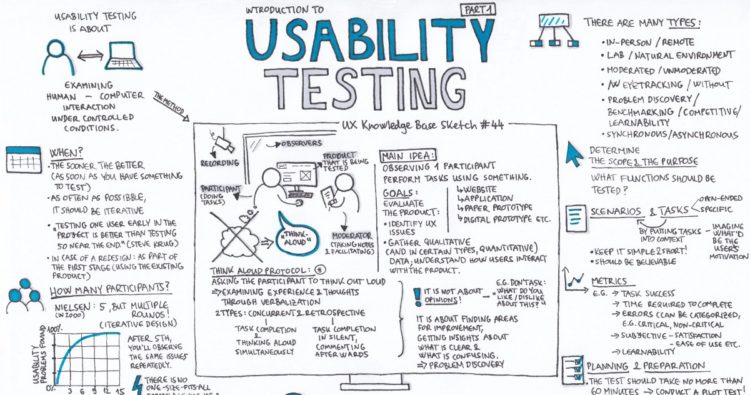 INTRODUCTION TO
PART 1
USABILITY
TESTING
UX Knowledge Base Sketch #44
USABILITY TESTING
IS ABOUT
EXAMINING
HUMAN - COMPUTER
INTERACTION
UNDER CONTROLLED
CONDITIONS.
THE METHOD
WHEN?
• THE SOONER THE BETTER
(AS SOON AS YOU HAVE SOMETHING
TO TEST)
• AS OFTEN AS POSSIBBLE,
IT SHOULD BE ITERATIVE
• "TESTING ONE USER EARLY IN THE
PROJECT IS BETTER THAN TESTING
50 NEAR THE END." (STEVE KRUG)
• IN CASE OF A REDESIGN: AS PART OF
THE FIRST STAGE (USING THE EXISTING
PRODUCT)
HOW MANY PARTICIPANTS?
NIELSEN: 5, BUT MULTIPLE
(2000) ROUNDS!
(ITERATIVE DESIGN)
100%
USABILITY
PROBLEMS FOUND
0 3 6 9 12 15
AFTER 5TH,
YOU'LL OBSERVE
THE SAME ISSUES
REPEATEDLY.
THERE IS NO
ONE-SIZE-FITS-ALL
OBSERVERS
RECORDING
PRODUCT
THAT IS BEING
TESTED
PARTICIPANT
(DOING
TASKS)
"THINK-
ALOUD"
MODERATOR
(TAKING NOTES
& FACILITATING)
THINK ALOUD PROTOCOL:
ASKING THE PARTICIPANT TO THINK OUT LOUD
⇒ EXAMINING EXPERIENCE & THOUGHTS
THROUGH VERBALIZATION
2 TYPES: CONCURRENT & RETROSPECTIVE
TASK COMPLETION
&
THINKING ALOUD
SIMULTANEOUSLY
TASK COMPLETION
IN SILENT,
COMMENTING
AFTERWARDS
MAIN IDEA:
OBSERVING 1 PARTICIPANT
PERFORM TASKS USING SOMETHING.
↳ WEBSITE
↳ APPLICATION
↳ PAPER PROTOTYPE
↳ DIGITAL PROTOTYPE ETC.
GOALS:
EVALUATE
THE PRODUCT:
• IDENTIFY UX
ISSUES
• GATHER QUALITATIVE
(AND IN CERTAIN TYPES, QUANTITATIVE)
DATA, UNDERSTAND HOW USERS INTERACT
WITH THE PRODUCT.
! IT IS NOT ABOUT
OPINIONS!
E.G. DON'T ASK:
"WHAT DO YOU
LIKE / DISLIKE
ABOUT THIS?"
IT IS ABOUT FINDING AREAS
FOR IMPROVEMENT,
GETTING INSIGHTS ABOUT
WHAT IS CLEAR &
WHAT IS CONFUSING.
⇒ PROBLEM DISCOVERY
THERE ARE MANY TYPES:
• IN-PERSON / REMOTE
• LAB / NATURAL ENVIRONMENT
• MODERATED / UNMODERATED
• W EYETRACKING / WITHOUT
• PROBLEM DISCOVERY /
BENCHMARKING / COMPETITIVE /
LEARNABILITY
• SYNCHRONOUS / ASYNCHRONOUS
DETERMINE
THE SCOPE & THE PURPOSE
WHAT FUNCTIONS SHOULD BE
TESTED?
SCENARIOS & TASKS
OPEN-ENDED
SPECIFIC
BY PUTTING TASKS
INTO CONTEXT
IMAGINE
WHAT'D
BE THE
USER'S
MOTIVATION
• KEEP IT SIMPLE & SHORT!
• SHOULD BE BELIEVABLE
METRICS
E.G. → TASK SUCCESS
→ TIME REQUIRED TO COMPLETE
→ ERRORS (CAN BE CATEGORIZED,
E.G. CRITICAL, NON-CRITICAL
→ SUBJECTIVE - SATISFACTION
- EASE OF USE ETC.
→ LEARNABILITY
PLANNING & PREPARATION
• THE TEST SHOULD TAKE NO MORE THAN
60 MINUTES → CONDUCT A PILOT TEST!